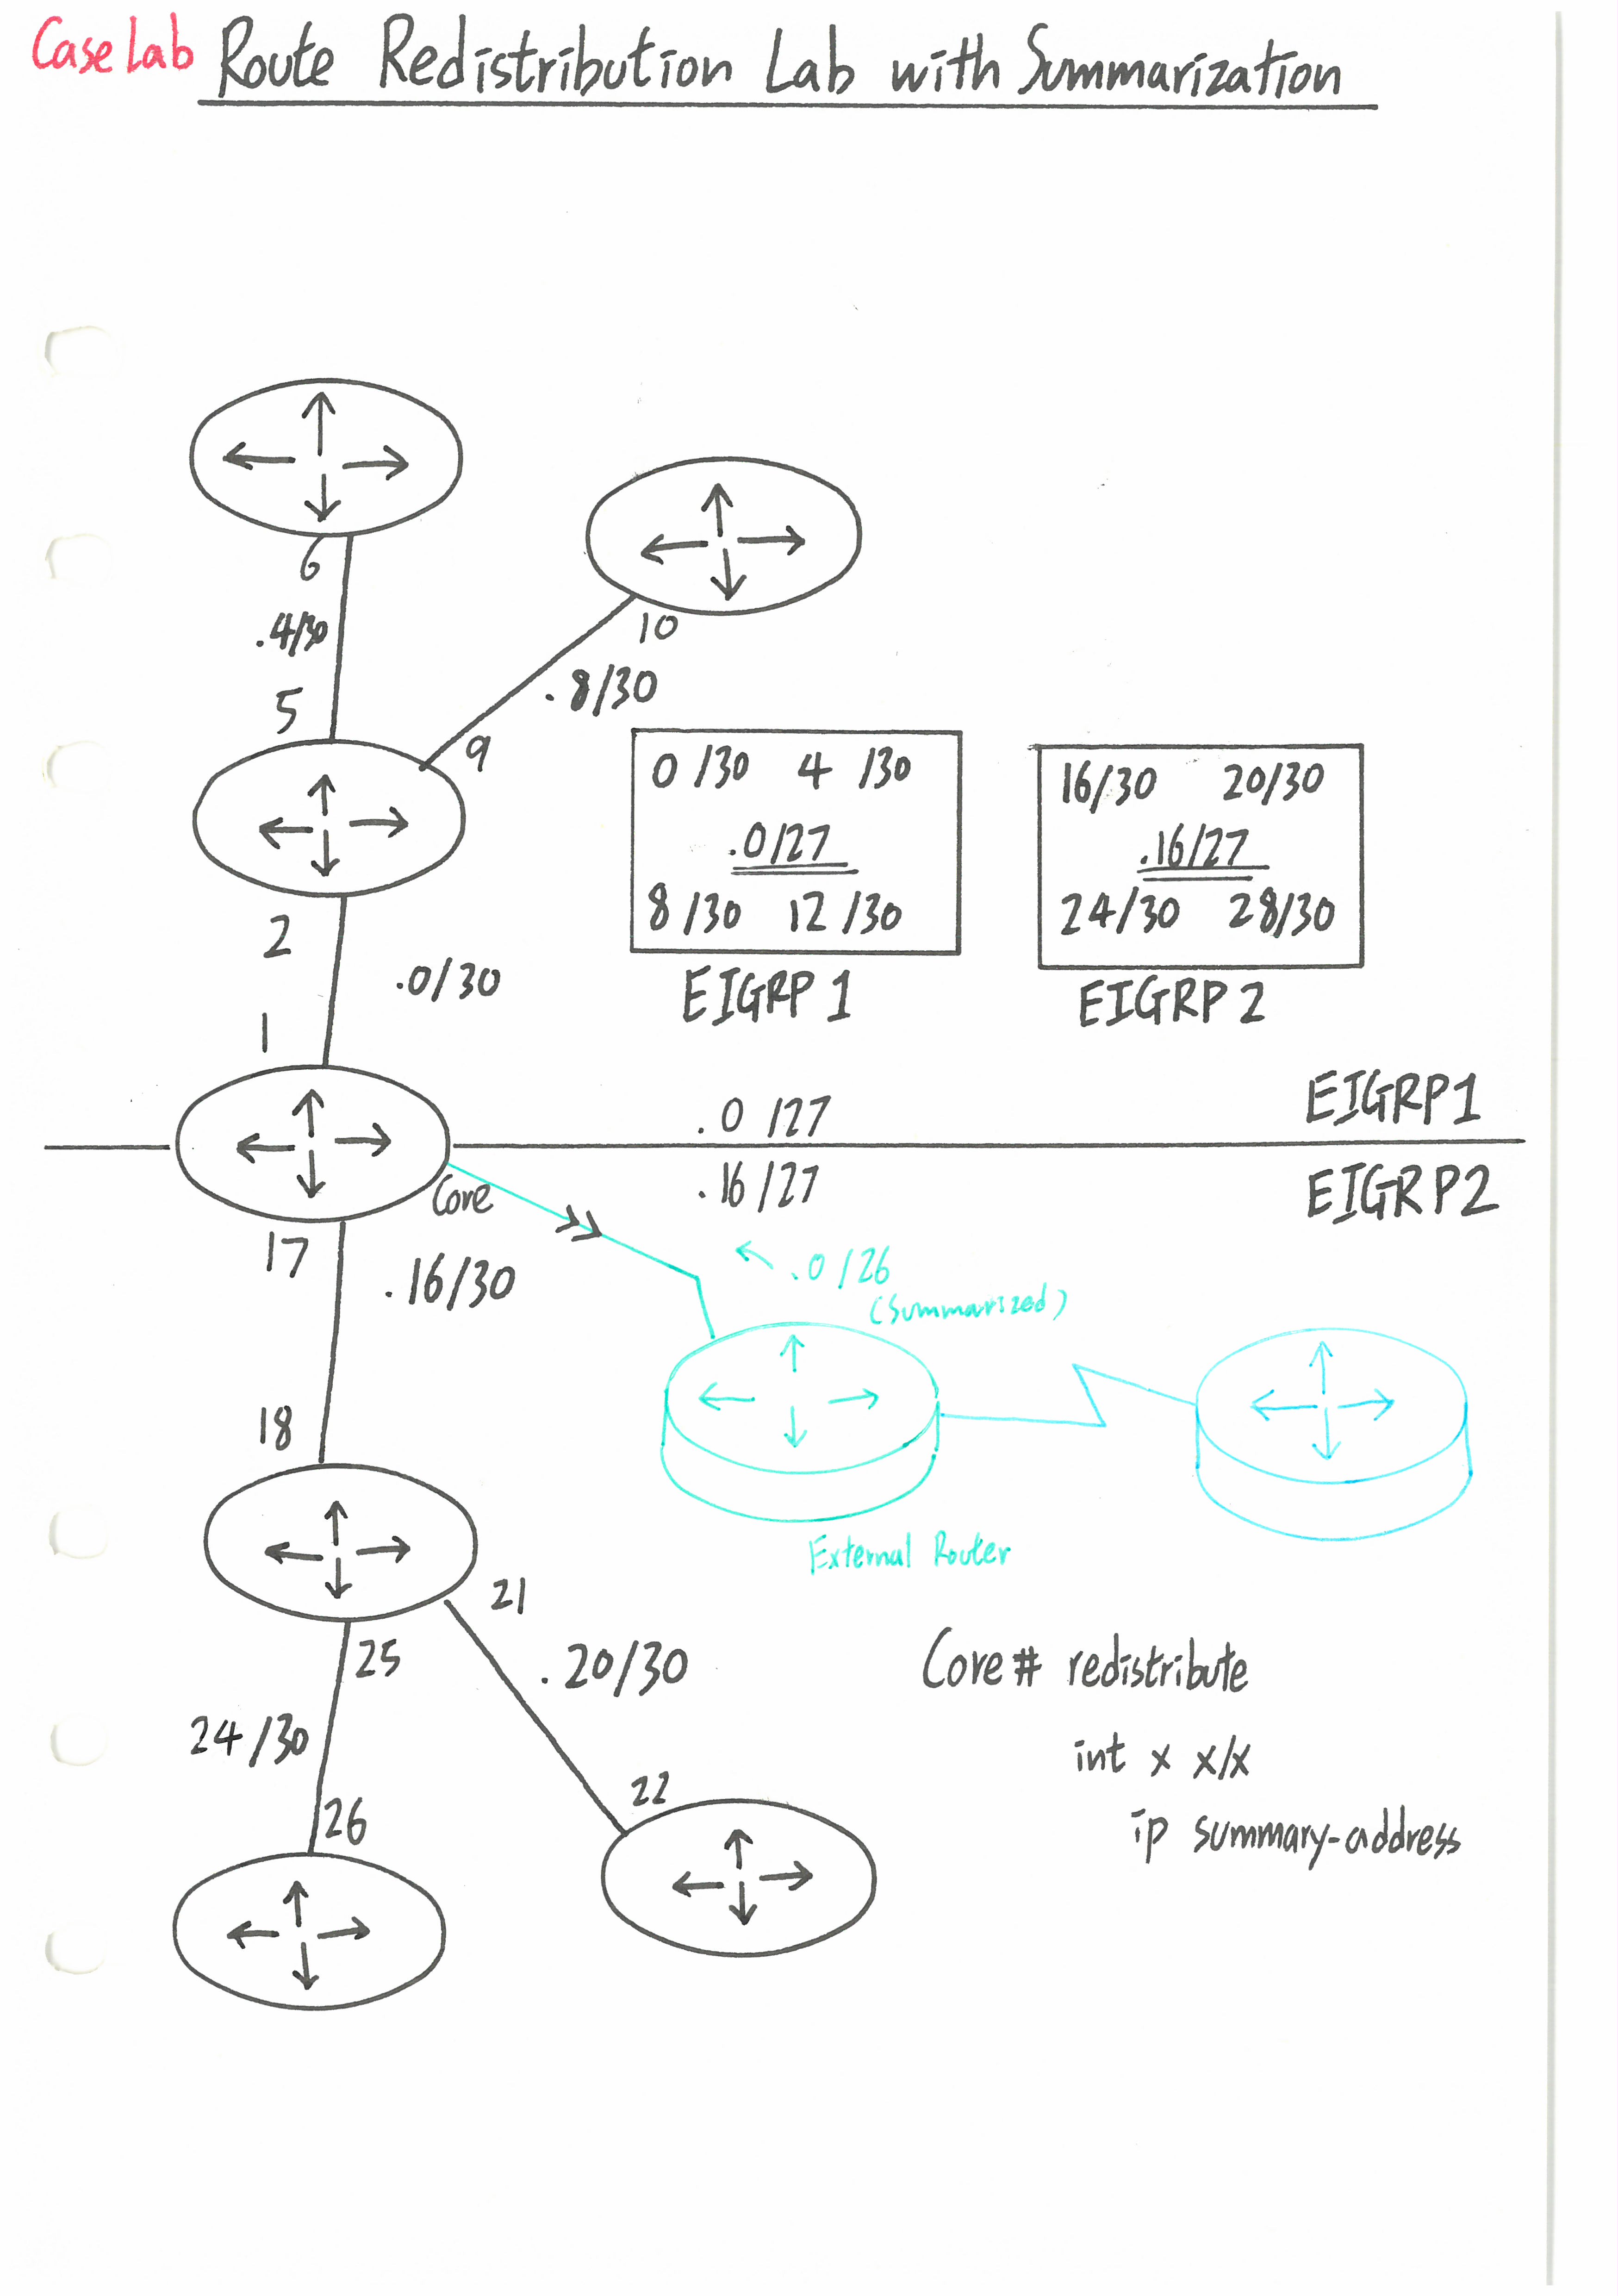 Case Lab Route Redistribution Lab with Summarization
6
.4/30
5
10
.8/30
9
0 /30 4 /30
.0/27
8 /30 12 /30
EIGRP 1
16/30 20/30
.16/27
24/30 28/30
EIGRP 2
2
.0/30
1
.0 /27
EIGRP1
Core
.16/27
EIGRP2
17
.16/30
.0/26
(Summarized)
18
External Router
21
25
.20/30
24/30
22
26
Core# redistribute
int x x/x
ip summary-address